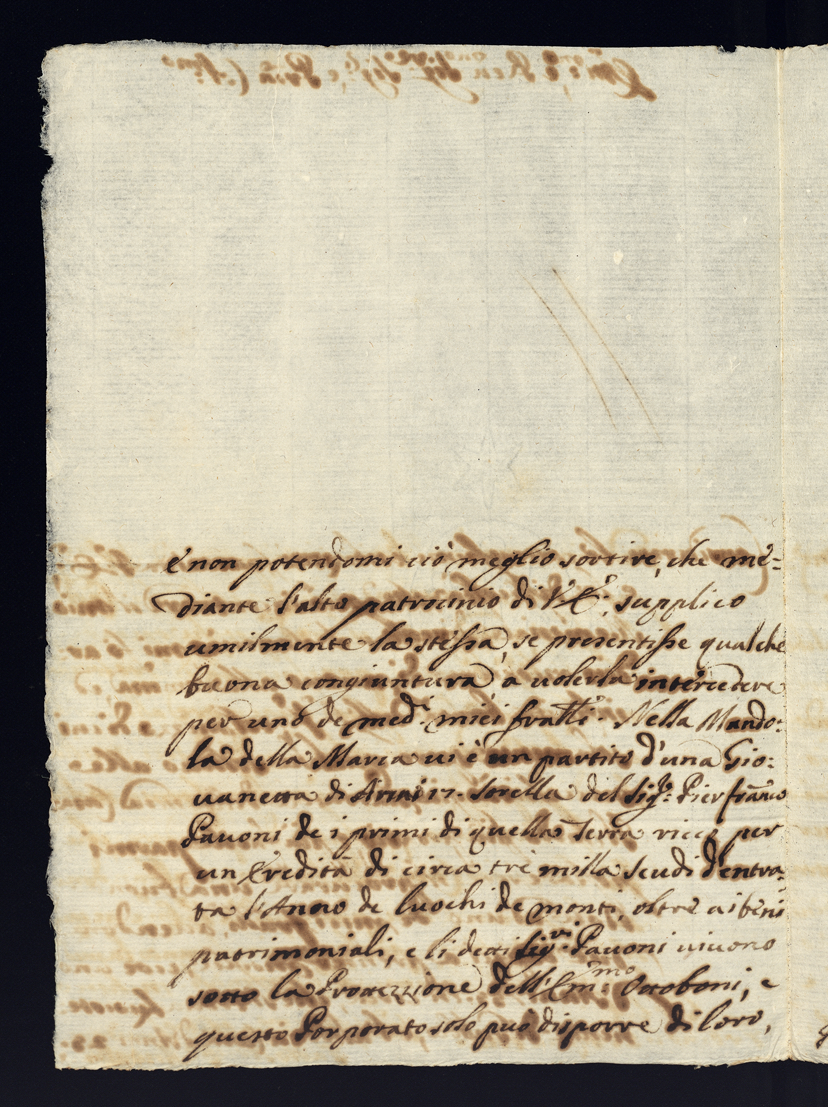 e non potendomi ciò meglio sortire, che me=
diante l'alto patrocinio di V.E., supplico
umilmente la stessa, se presentisse qualche
buona congiuntura, a volerla intercedere
per uno de med.i miei fratelli. Nella Mando:
la della Marca vi è un partito d'una Gio:
vanetta di Anni 17. sorella del Sig.r Pier franc.o
Pavoni de i primi di quella Terra ricca per
un Eredità di circa tre milla scudi d'entra:
ta l'Anno de luochi de monti, oltre a i beni
patrimoniali, e li detti Sig.ri Pavoni vivono
sotto la Protezzione dell'Em.mo Ottoboni, e
questo Porporato solo può disporre di loro,